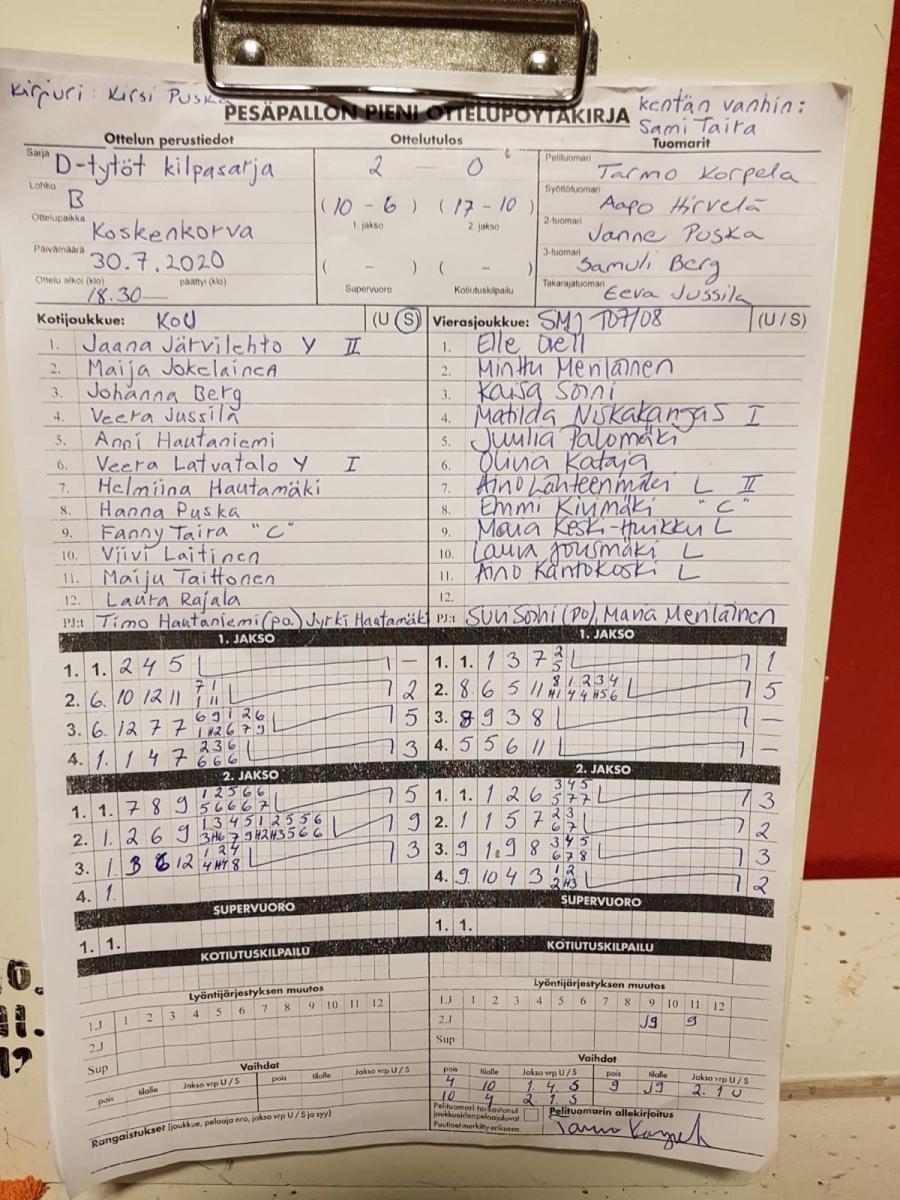 Kirjuri: Kirsi Puska
PESÄPALLON PIENI OTTELUPÖYTÄKIRJA
kentän vanhin:
Sami Taira
Ottelun perustiedot
Ottelutulos
Tuomarit
Sarja D-tytöt kilpasarja
Lohko B
Ottelupaikka Koskenkorva
Päivämäärä 30.7.2020
Ottelu alkoi (klo) 18.30 päättyi (klo)
2 — 0
(10 - 6) (17 - 10)
1. jakso 2. jakso
( - ) ( - )
Supervuoro Kotiutuskilpailu
Pelituomari Tarmo Korpela
Syöttötuomari Aapo Hirvelä
2-tuomari Janne Puska
3-tuomari Samuli Berg
Takarajatuomari Eeva Jussila
Kotijoukkue: KoU (U S)
1. Jaana Järvilehto Y II
2. Maija Jokelainen
3. Johanna Berg
4. Veera Jussila
5. Anni Hautaniemi
6. Veera Latvatalo Y I
7. Helmiina Hautamäki
8. Hanna Puska
9. Fanny Taira "C"
10. Viivi Laitinen
11. Maiju Taittonen
12. Laura Rajala
PJ:t Timo Hautaniemi (po.) Jyrki Hautamäki
Vierasjoukkue: SMJ T07/08 (U / S)
1. Elle
2. Minttu Meriläinen
3. Kaisa Soini
4. Matilda Niskakangas I
5. Juulia Palomäki
6. Oliva Kataja
7. Aino Lähteenmäki L II
8. Emmi Kivimäki "C"
9. Keski-Huikku L
10. Laura Jousmäki L
11. Aino Kantokoski L
12.
PJ:t Soini (po), Maria Meriläinen
1. JAKSO
1. 1. 2 4 5 —
2. 6. 10 12 11 7 1 2
3. 6. 12 7 7 6 9 1 2 6 5
4. 1. 1 4 7 2 3 6 6 6 6 3
1. JAKSO
1. 1. 1 3 7 2 5 1
2. 8. 6 5 11 8 1 2 3 4 5
3. 8 9 3 8 —
4. 5 5 6 11 —
2. JAKSO
1. 1. 7 8 9 1 2 5 6 6 5 6 6 6 7 5
2. 1. 2 6 9 1 3 4 5 1 2 5 5 6 9
3. 1. 3 6 12 1 2 4 3
4. 1.
2. JAKSO
1. 1. 1 2 6 3 4 5 5 7 7 3
2. 1 1 5 7 2 3 6 7 2
3. 9 1. 9 8 3 4 5 6 7 8 3
4. 9. 10 4 3 1 2 2 H3 2
SUPERVUORO
1. 1.
SUPERVUORO
1. 1.
KOTIUTUSKILPAILU
KOTIUTUSKILPAILU
Lyöntijärjestyksen muutos
1 2 3 4 5 6 7 8 9 10 11 12
1.J
2.J
Sup
Vaihdot
pois tilalle Jakso vrp U / S pois tilalle Jakso vrp U / S
Rangaistukset (joukkue, pelaaja nro, jakso vrp U / S ja syy)
Lyöntijärjestyksen muutos
1.J 1 2 3 4 5 6 7 8 9 10 11 12
2.J J9 9
Sup
Vaihdot
pois tilalle Jakso vrp U / S pois tilalle Jakso vrp U / S
4 10 1. 4. S 9 J9 2. 1 U
10 4 2. 1. S
Pelituomari tarkastanut joukkueiden pelaajaluvat
Puutteet merkitty erikseen.
Pelituomarin allekirjoitus